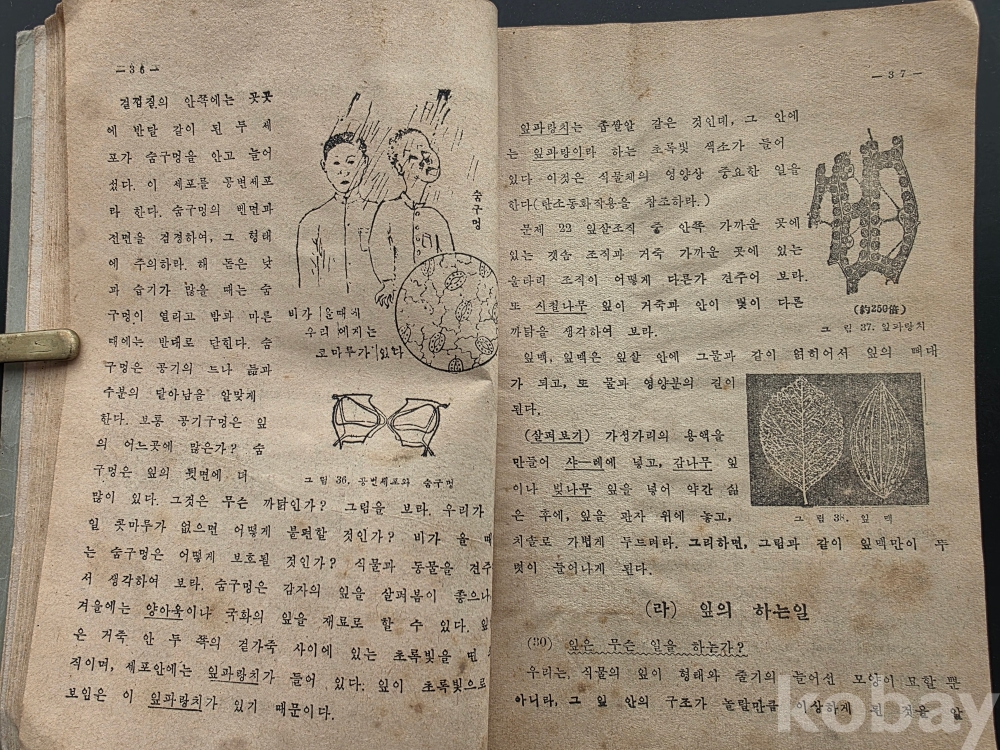 —36—
겉껍질의 안쪽에는 곳곳
에 반달 같이 된 두 세
포가 숨구멍을 안고 늘어
섰다. 이 세포를 공변세포
라 한다. 숨구멍의 변면과
전면을 검경하여, 그 형태
에 주의하라. 해 돋은 낮
과 습기가 많을 때는 숨
구멍이 열리고 밤과 마른
때에는 반대로 닫힌다. 숨
구멍은 공기의 드나듦과
수분의 달아남을 알맞게
한다. 보통 공기구멍은 잎
의 어느곳에 많은가? 숨
구멍은 잎의 뒷면에 더
숨구멍
비가 올때에
우리에게는
코마루가 있다
그림 36. 공변세포와 숨구멍
많이 있다. 그것은 무슨 까닭인가? 그림을 보라. 우리가
일 콧마루가 없으면 어떻게 불편할 것인가? 비가 올 때
는 숨구멍은 어떻게 보호될 것인가? 식물과 동물을 견주
서 생각하여 보라. 숨구멍은 감자의 잎을 살펴봄이 좋으나
겨울에는 양아욱이나 국화의 잎을 재료로 할 수 있다. 잎
은 거죽 안 두 쪽의 겉가죽 사이에 있는 초록빛을 띤
직이며, 세포안에는 잎파랑치가 들어 있다. 잎이 초록빛으로
보임은 이 잎파랑치가 있기 때문이다.
—37—
잎파랑치는 좁쌀알 같은 것인데, 그 안에
는 잎파랑이라 하는 초록빛 색소가 들어
있다 이것은 식물체의 영양상 중요한 일을
한다(탄소동화작용을 참조하라.)
문제 22 잎살조직 중 안쪽 가까운 곳에
있는 갯솜 조직과 거죽 가까운 곳에 있는
울타리 조직이 어떻게 다른가 견주어 보라.
또 사철나무 잎이 거죽과 안이 빛이 다른
까닭을 생각하여 보라.
(約250倍)
그림 37. 잎파랑치
잎맥, 잎맥은 잎살 안에 그물과 같이 얽히어서 잎의 뼈대
가 되고, 또 물과 영양분의 길이
된다.
(살펴보기) 가성가리의 용액을
만들어 샤—레에 넣고, 감나무 잎
이나 벚나무 잎을 넣어 약간 삶
은 후에, 잎을 판자 위에 놓고,
그림 38. 잎맥
치솔로 가볍게 두드려라. 그리하면, 그림과 같이 잎맥만이 뚜
렷이 들어나게 된다.
(라) 잎의 하는일
(30) 잎은 무슨 일을 하는가?
우리는, 식물의 잎이 형태와 줄기의 늘어선 모양이 묘할 뿐
아니라, 그 잎 안의 구조가 놀랄만큼 이상하게 된 것을 알
kobay